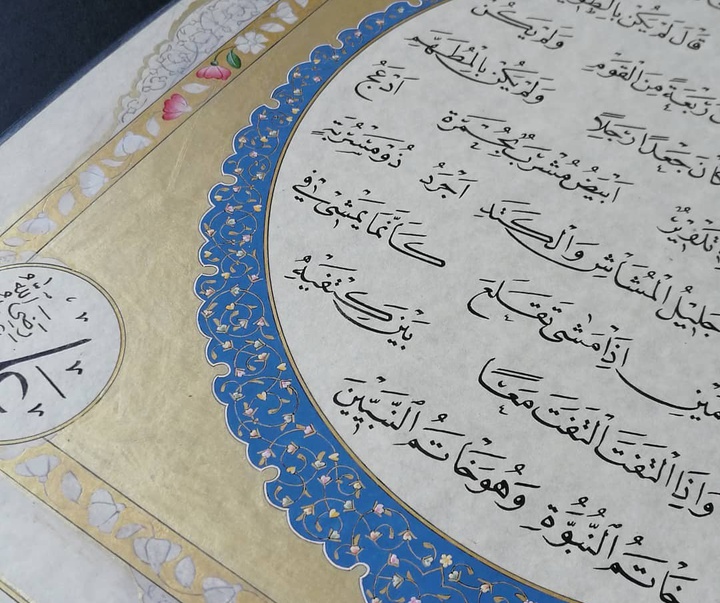 قَالَ لَمْ يَكُنْ بِالطَّوِيلِ
رَبْعَةً مِنَ الْقَوْمِ وَلَمْ يَكُنْ
جَعْدًا رَجِلًا وَلَمْ يَكُنْ بِالْمُطَهَّمِ
تَدْوِيرٌ اَبْيَضُ مُشْرَبٌ بِحُمْرَةٍ اَدْعَجُ
جَلِيلُ الْمُشَاشِ وَالْكَتَدِ اَجْرَدُ ذُو مَسْرُبَةٍ
اِذَا مَشٰى تَقَلَّعَ كَاَنَّمَا يَمْشٖى فٖى
وَاِذَا الْتَفَتَ الْتَفَتَ مَعًا بَيْنَ كَتِفَيْهِ
خَاتَمُ النُّبُوَّةِ وَهُوَ خَاتَمُ النَّبِيّٖينَ